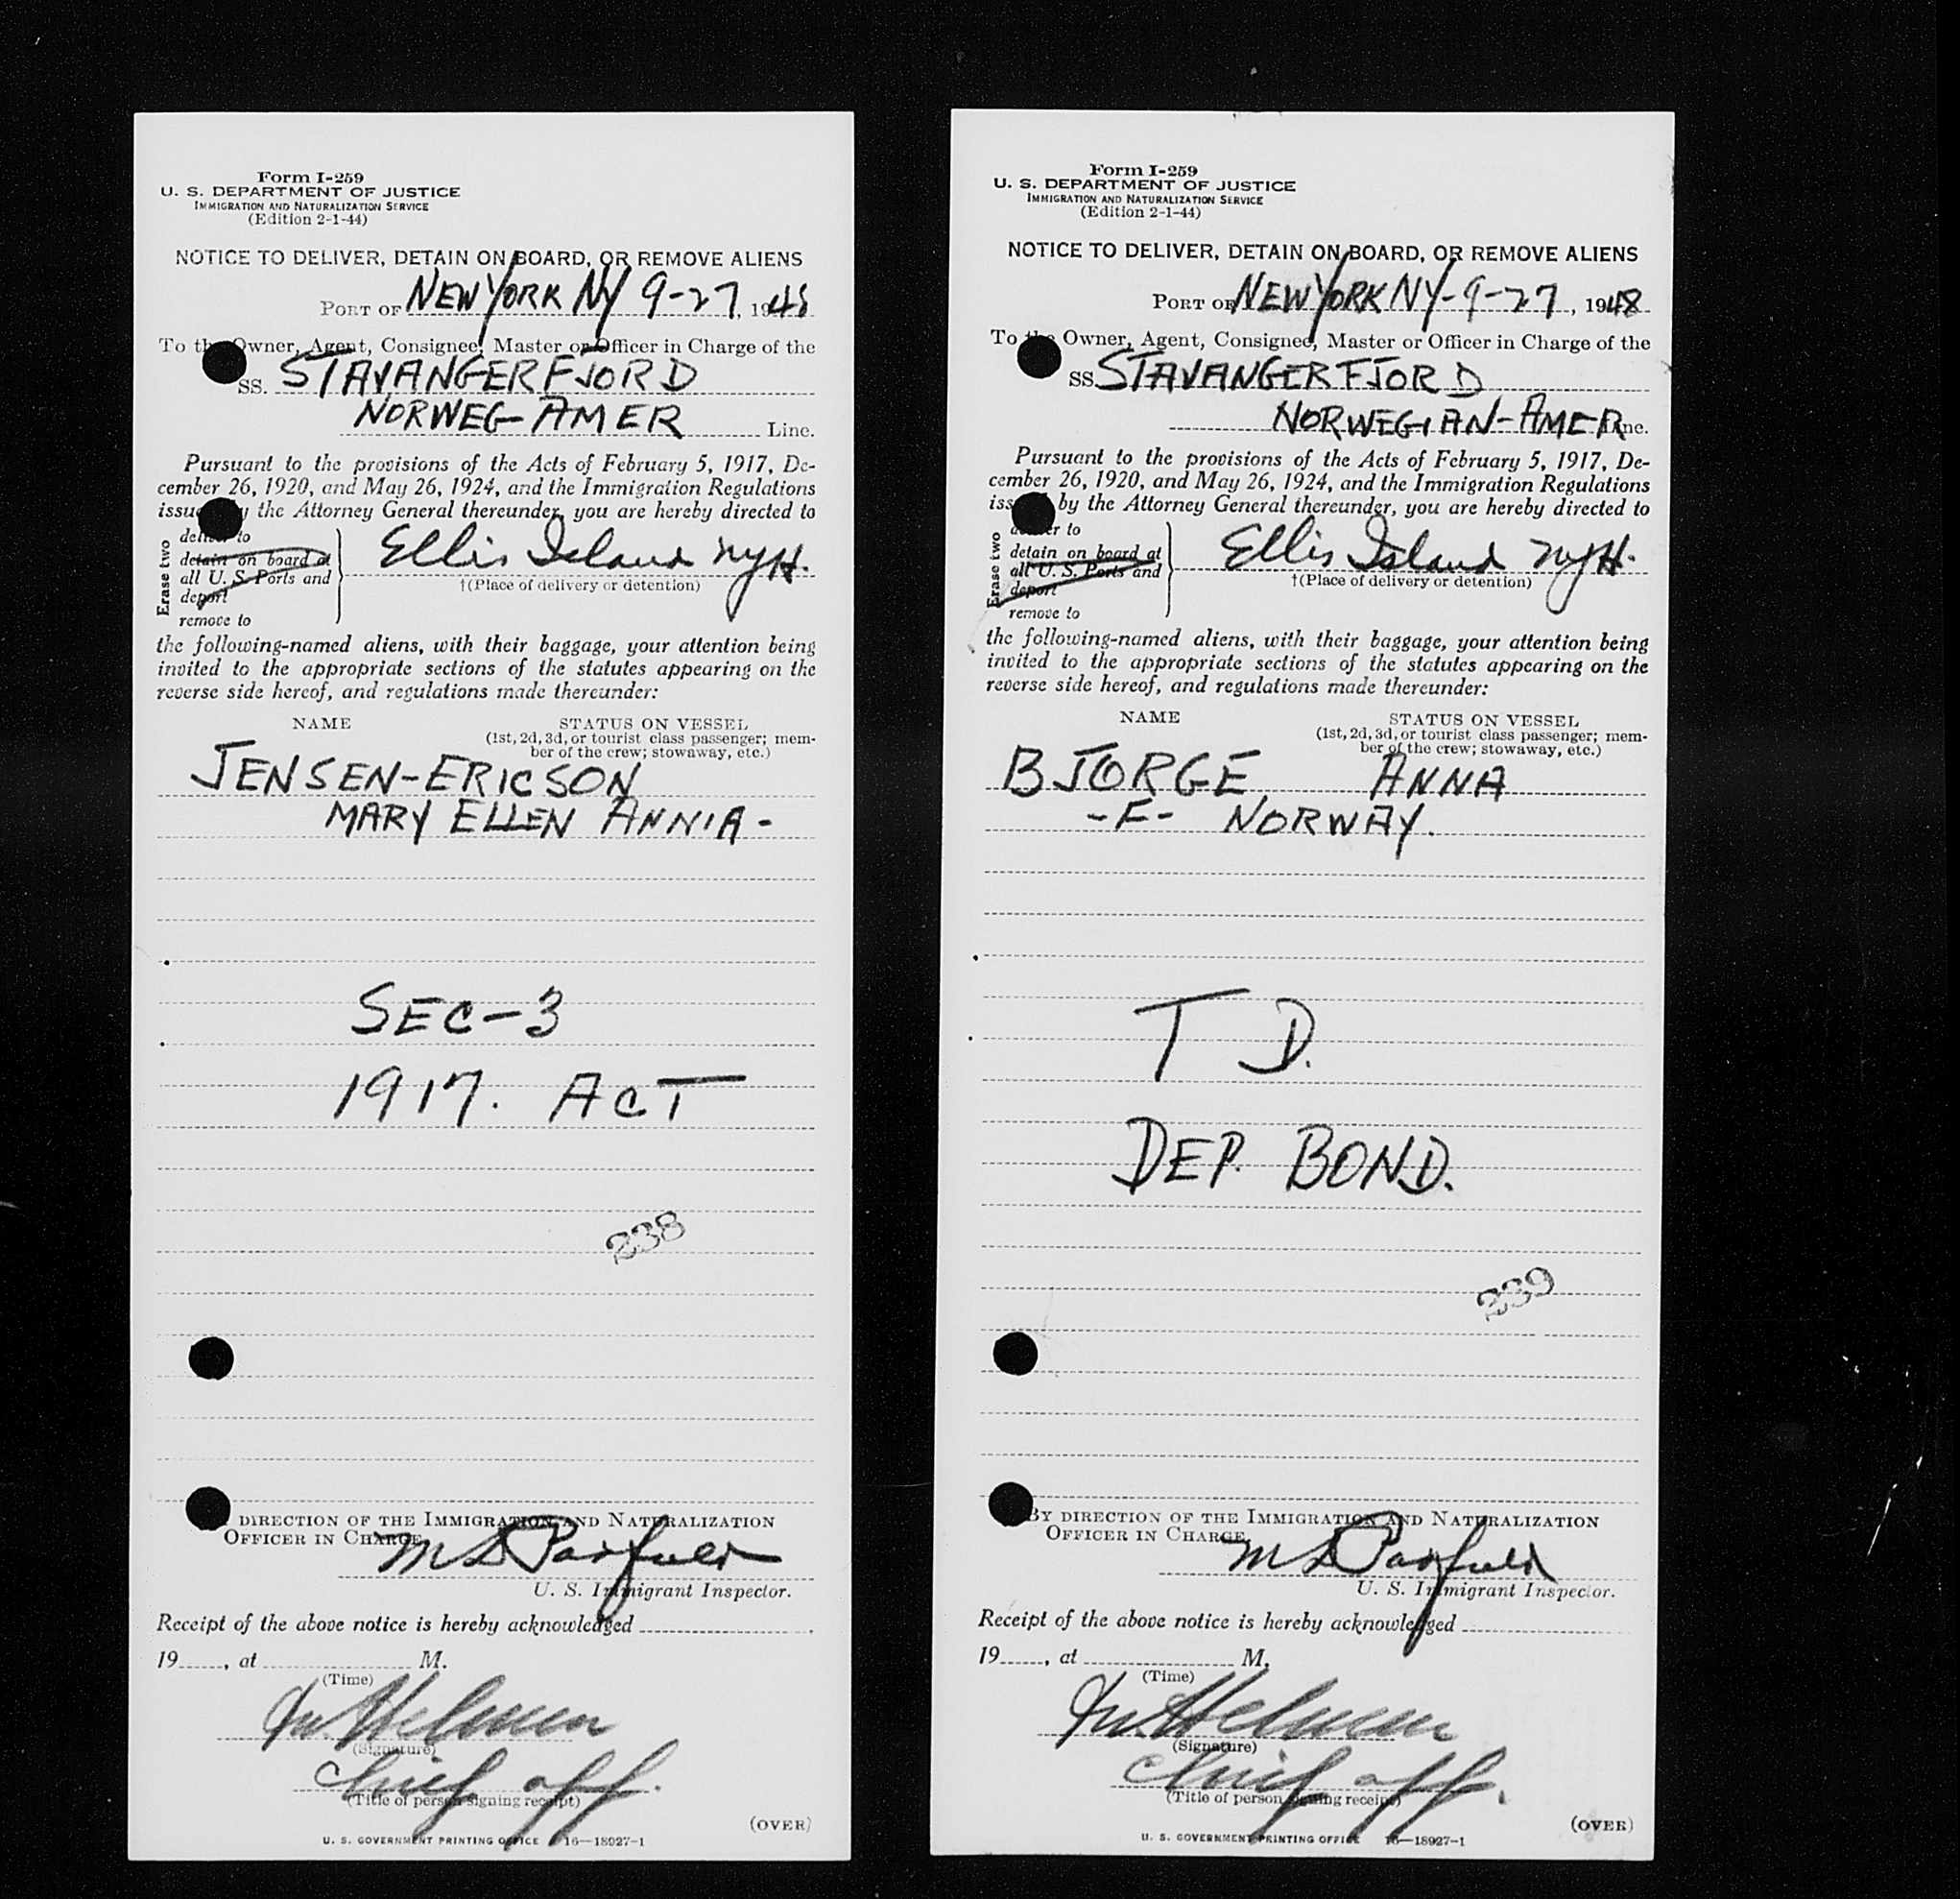 Form I-259
U. S. DEPARTMENT OF JUSTICE
IMMIGRATION AND NATURALIZATION SERVICE
(Edition 2-1-44)
NOTICE TO DELIVER, DETAIN ON BOARD, OR REMOVE ALIENS
PORT OF NEW YORK NY 9-27, 1948
To the Owner, Agent, Consignee, Master or Officer in Charge of the
SS. STAVANGERFJORD
NORWEG-AMER Line.
Pursuant to the provisions of the Acts of February 5, 1917, De-
cember 26, 1920, and May 26, 1924, and the Immigration Regulations
issued by the Attorney General thereunder, you are hereby directed to
Erase two
deliver to
detain on board at
all U. S. Ports and
deport
remove to
Ellis Island NYH.
†(Place of delivery or detention)
the following-named aliens, with their baggage, your attention being
invited to the appropriate sections of the statutes appearing on the
reverse side hereof, and regulations made thereunder:
NAME STATUS ON VESSEL
(1st, 2d, 3d, or tourist class passenger; mem-
ber of the crew; stowaway, etc.)
JENSEN-ERICSON
MARY ELLEN ANNIA-
SEC-3
1917. ACT
238
DIRECTION OF THE IMMIGRATION AND NATURALIZATION
OFFICER IN CHARGE
U. S. Immigrant Inspector.
Receipt of the above notice is hereby acknowledged
19 , at M.
(Time)
(Signature)
Chief off.
(Title of person signing receipt)
(OVER)
U. S. GOVERNMENT PRINTING OFFICE 16—18927-1
Form I-259
U. S. DEPARTMENT OF JUSTICE
IMMIGRATION AND NATURALIZATION SERVICE
(Edition 2-1-44)
NOTICE TO DELIVER, DETAIN ON BOARD, OR REMOVE ALIENS
PORT OF NEW YORK NY-9-27, 1948
To the Owner, Agent, Consignee, Master or Officer in Charge of the
SS STAVANGERFJORD
NORWEGIAN-AMER Line.
Pursuant to the provisions of the Acts of February 5, 1917, De-
cember 26, 1920, and May 26, 1924, and the Immigration Regulations
issued by the Attorney General thereunder, you are hereby directed to
Erase two
deliver to
detain on board at
all U. S. Ports and
deport
remove to
Ellis Island NYH.
†(Place of delivery or detention)
the following-named aliens, with their baggage, your attention being
invited to the appropriate sections of the statutes appearing on the
reverse side hereof, and regulations made thereunder:
NAME STATUS ON VESSEL
(1st, 2d, 3d, or tourist class passenger; mem-
ber of the crew; stowaway, etc.)
BJORGE ANNA
-F- NORWAY.
T D.
DEP. BOND.
239
BY DIRECTION OF THE IMMIGRATION AND NATURALIZATION
OFFICER IN CHARGE
U. S. Immigrant Inspector.
Receipt of the above notice is hereby acknowledged
19 , at M.
(Time)
(Signature)
Chief off.
(Title of person signing receipt)
(OVER)
U. S. GOVERNMENT PRINTING OFFICE 16—18927-1